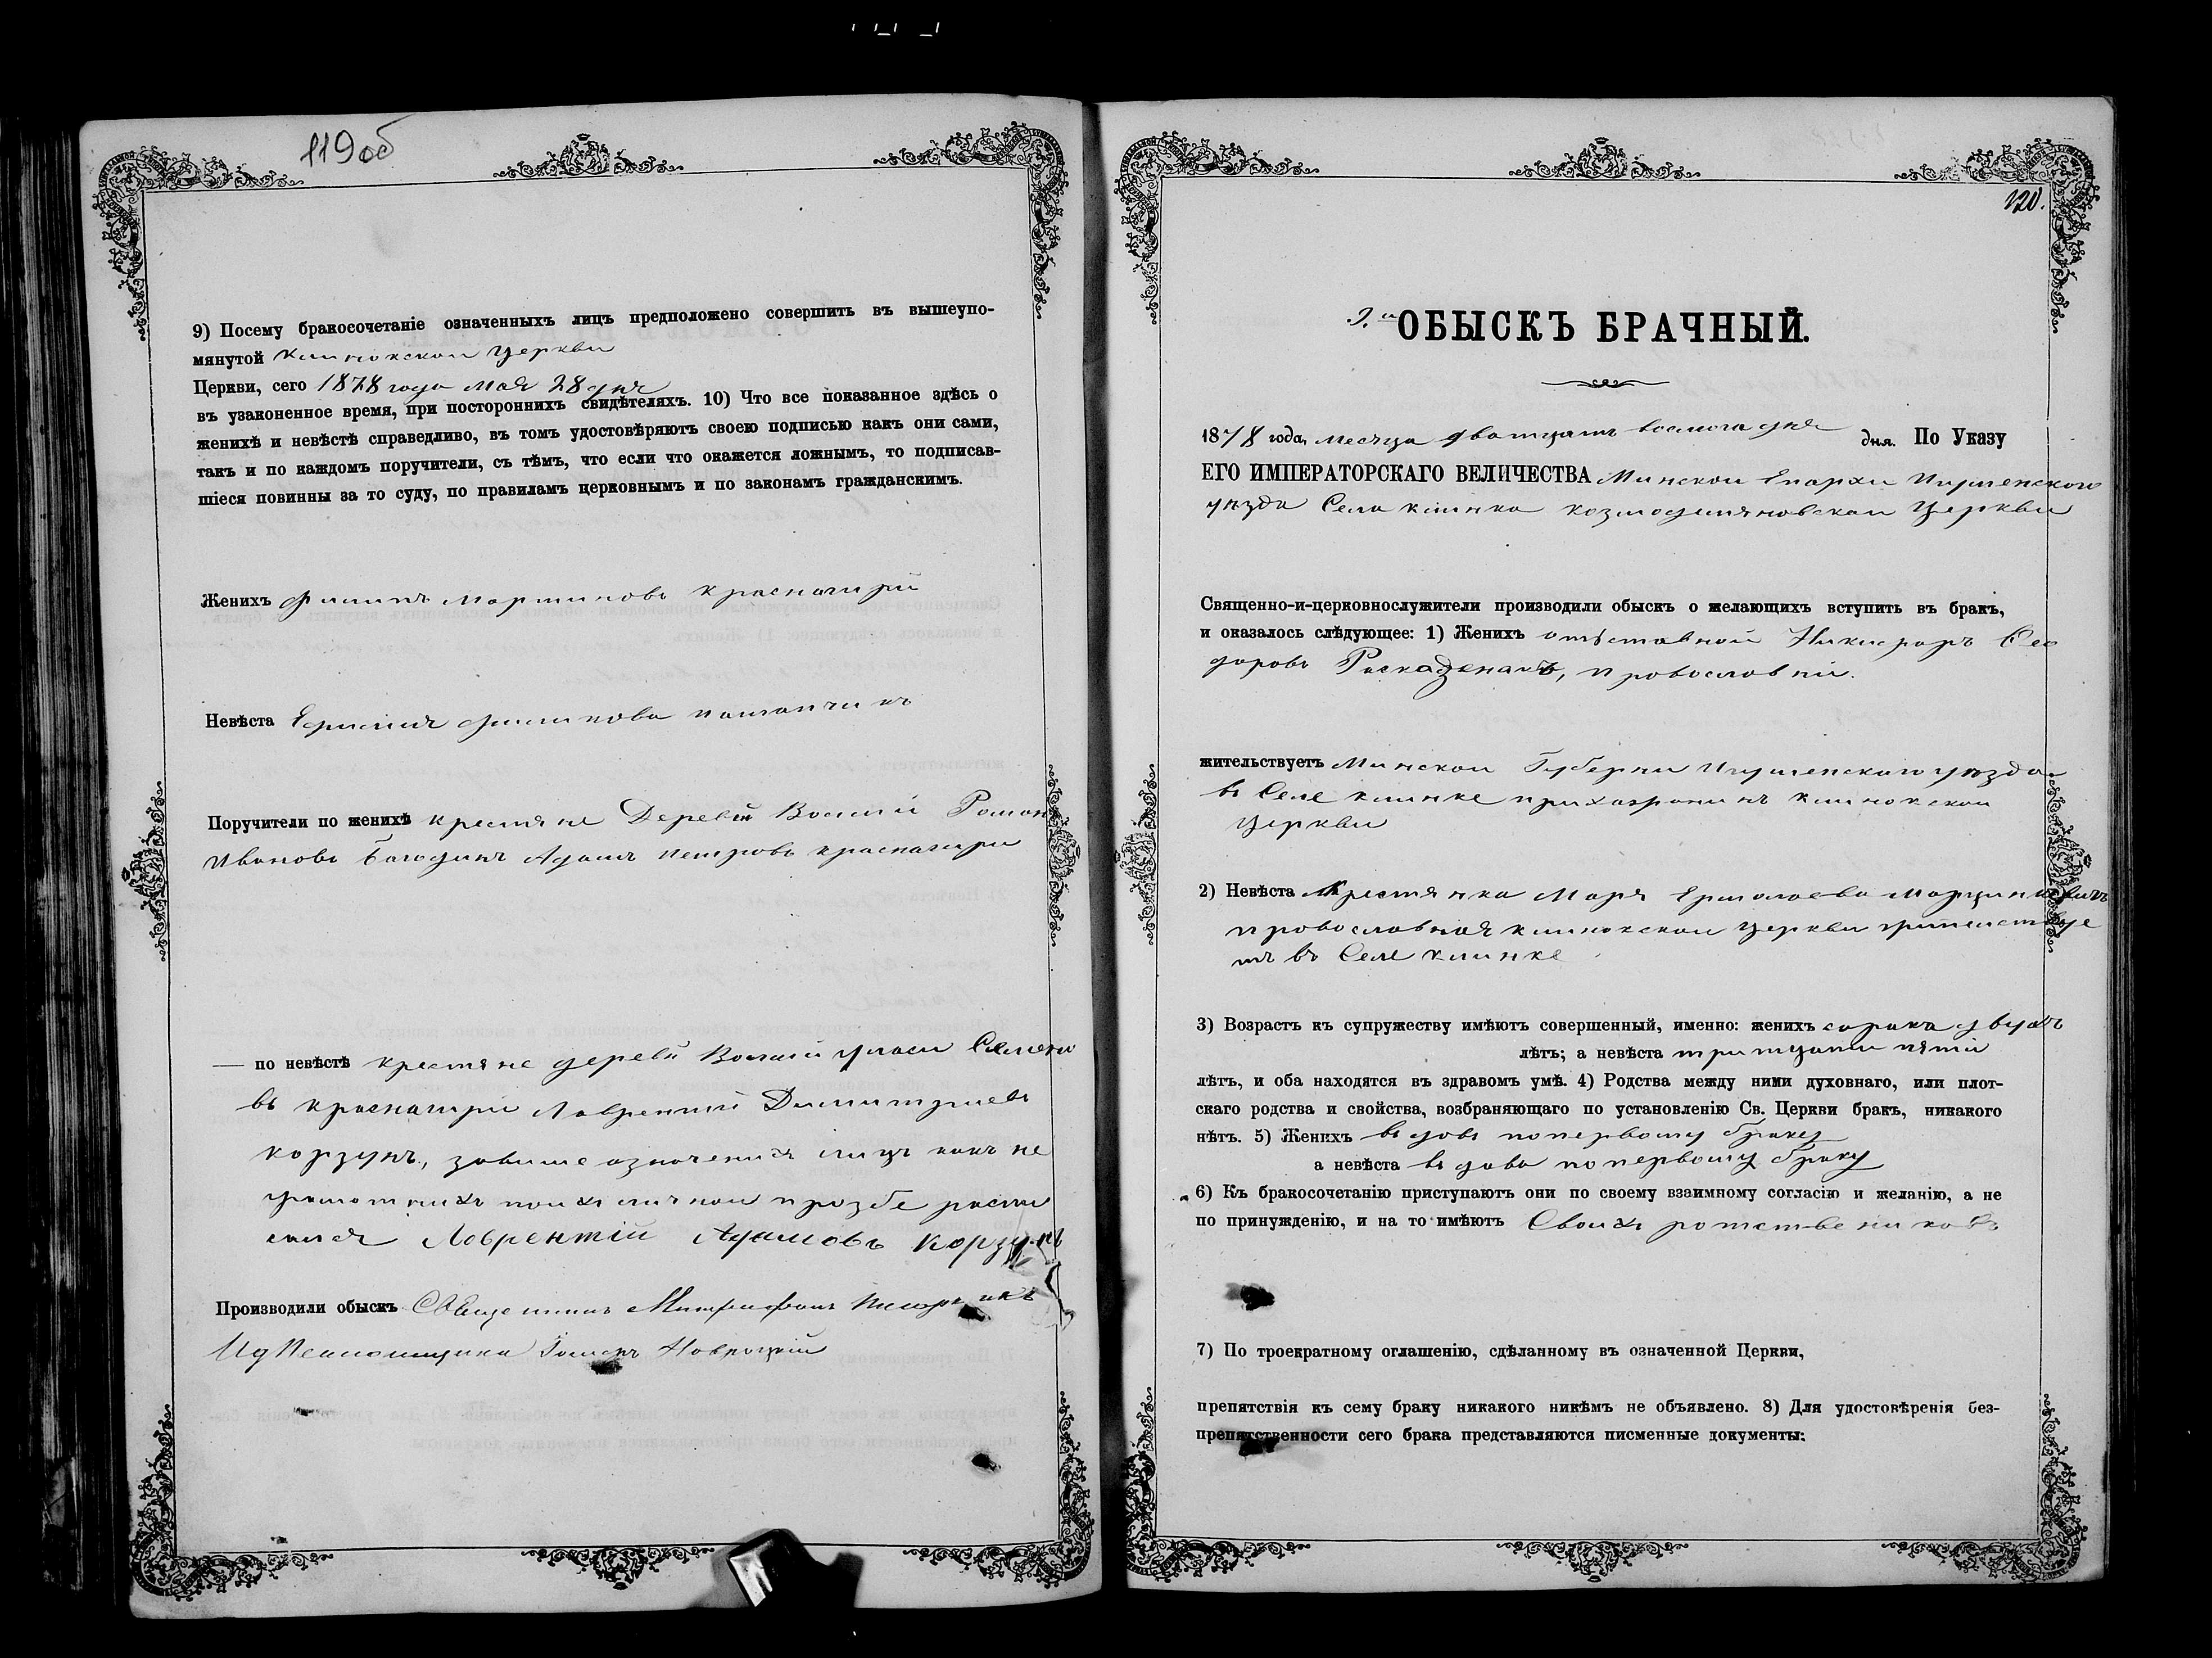 119 об
9) Посему бракосочетаніе означенныхъ лицъ предположено совершить въ вышеупо-
мянутой клинокскои церкви
Церкви, сего 1878 года мая 28 дня
въ узаконенное время, при постороннихъ свидѣтеляхъ. 10) Что все показанное здѣсь о
женихѣ и невѣстѣ справедливо, въ томъ удостовѣряютъ своею подписью какъ они сами,
такъ и по каждомъ поручители, съ тѣмъ, что если что окажется ложнымъ, то подписав-
шіеся повинны за то суду, по правиламъ церковнымъ и по законамъ гражданскимъ.
Женихъ филипъ Мартиновъ
Невѣста филипова
Поручители по женихѣ крестяне Деревй Роман
Ивановъ Адамъ петровъ
— по невѣстѣ крестяне деревй Семено
въ Лаврентий Димитриевъ
корзунъ, означених лицъ какъ не
грамотнихъ поихъ личнои прозбе роспи
сался Лаврентій Адамовъ Корзунъ
Производили обыскъ Священникъ Митрофанъ
Новроцкій
120.
ОБЫСКЪ БРАЧНЫЙ.
1878 года, месяца дватцать восмога дня дня. По Указу
ЕГО ИМПЕРАТОРСКАГО ВЕЛИЧЕСТВА Минскои Епархи Игуменского
уѣзда Села клинка козмодемяновскаи Церкви
Священно-и-церковнослужители производили обыскъ о желающихъ вступить въ бракъ,
и оказалось слѣдующее: 1) Женихъ отставной Никифоръ Фео
доровъ провославній.
жительствуетъ Минскои Губерни Игуменскаго уѣзда
въ Селе клинке прихажанинъ клинокскои
Церкви
2) Невѣста крестянка Маря Ермолаева
провославная клинокскои церкви жителствуе
тъ въ Селе клинке
3) Возрастъ къ супружеству имѣютъ совершенный, именно: женихъ сорока двухъ
лѣтъ; а невѣста тритцати пяти
лѣтъ, и оба находятся въ здравомъ умѣ. 4) Родства между ними духовнаго, или плот-
скаго родства и свойства, возбраняющаго по установленію Св. Церкви бракъ, никакого
нѣтъ. 5) Женихъ въдовъ попервому браку
а невѣста въдова попервому браку
6) Къ бракосочетанію приступаютъ они по своему взаимному согласію и желанію, а не
по принужденію, и на то имѣютъ Своихъ ротствениковъ
7) По троекратному оглашенію, сдѣланному въ означенной Церкви,
препятствія къ сему браку никакого никѣмъ не объявлено. 8) Для удостовѣренія без-
препятственности сего брака представляются писменные документы: